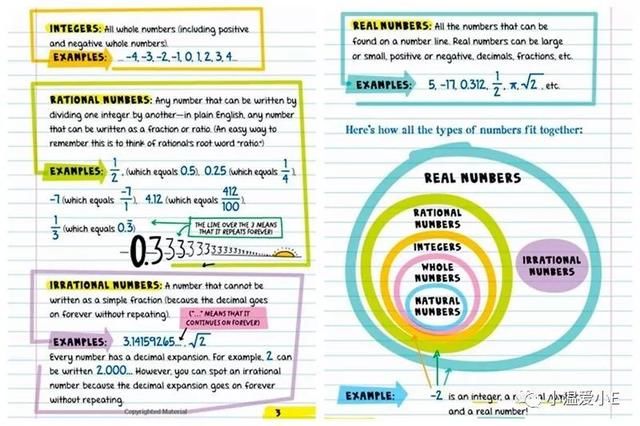 INTEGERS: All whole numbers (including positive
and negative whole numbers).
EXAMPLES: ... -4, -3, -2, -1, 0, 1, 2, 3, 4...
RATIONAL NUMBERS: Any number that can be written by
dividing one integer by another—in plain English, any number
that can be written as a fraction or ratio. (An easy way to
remember this is to think of rational's root word "ratio.")
EXAMPLES: 1/2, (which equals 0.5), 0.25 (which equals 1/4),
-7 (which equals -7/1), 4.12 (which equals 412/100),
1/3 (which equals 0.3̅)
THE LINE OVER THE 3 MEANS
THAT IT REPEATS FOREVER!
IRRATIONAL NUMBERS: A number that cannot be
written as a simple fraction (because the decimal goes
on forever without repeating).
("..." MEANS THAT IT
CONTINUES ON FOREVER)
EXAMPLES: 3.14159265..., √2
Every number has a decimal expansion. For example, 2 can
be written 2.000... However, you can spot an irrational
number because the decimal expansion goes on forever
without repeating.
Copyrighted Material
3
REAL NUMBERS: All the numbers that can be
found on a number line. Real numbers can be large
or small, positive or negative, decimals, fractions, etc.
EXAMPLES: 5, -17, 0.312, 1/2, π, √2, etc.
Here's how all the types of numbers fit together:
REAL NUMBERS
RATIONAL
NUMBERS
INTEGERS
WHOLE
NUMBERS
NATURAL
NUMBERS
IRRATIONAL
NUMBERS
EXAMPLE: -2 is an integer, a
and a real number!
小温爱小E